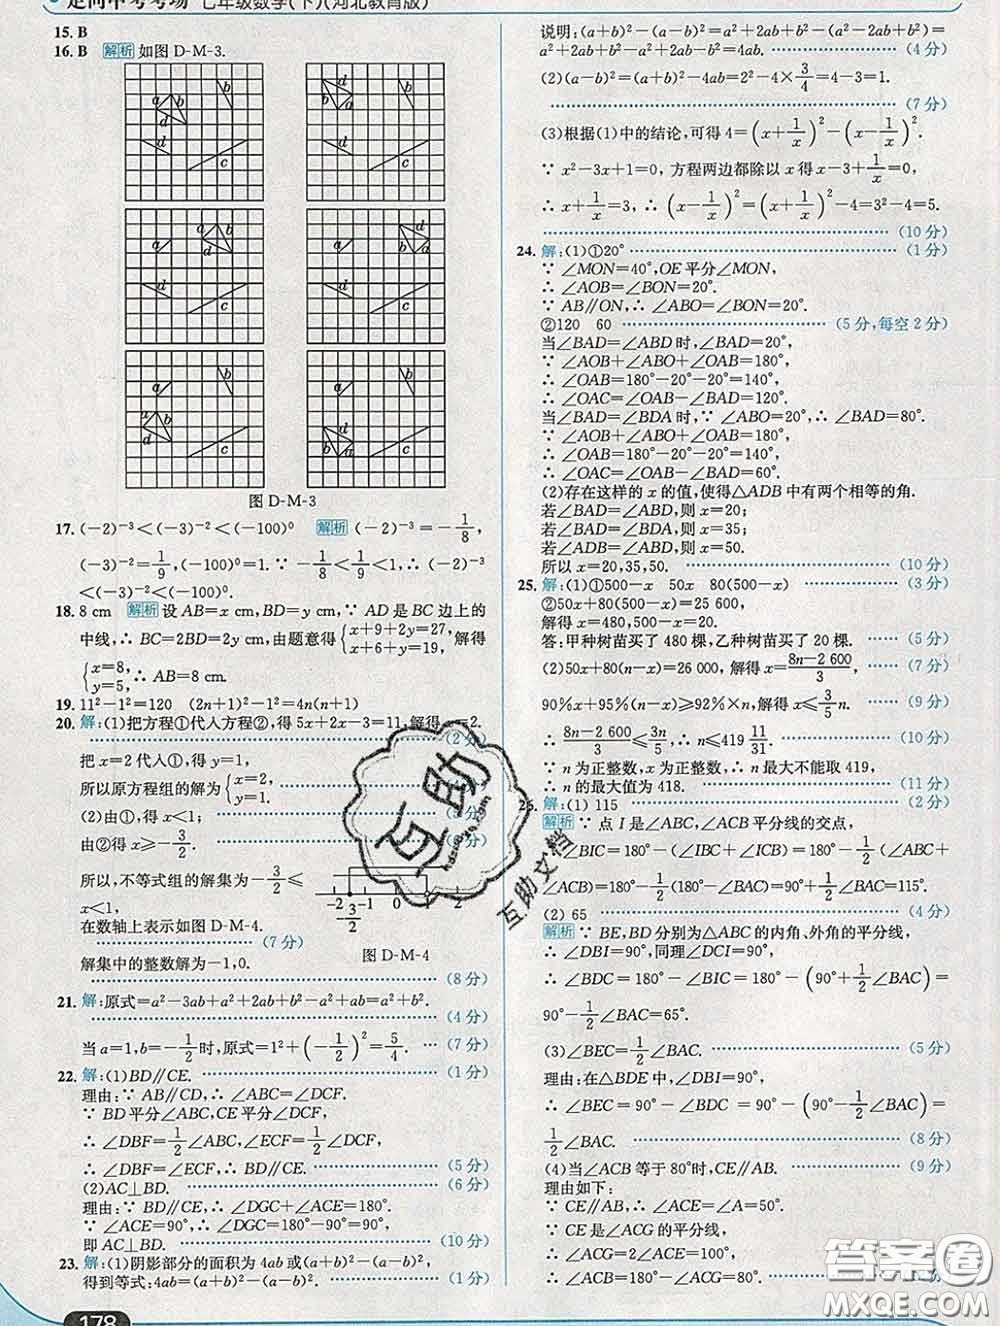 走向中考考场 七年级数学(下)(河北教育版)
15. B
16. B 解析 如图 D-M-3.
a b d b
d c
d b a b
d c
a a b d
d c
a d b a
d c
a b
a b d c
a b
d b a c
图 D-M-3
17. (-2)⁻³<(-3)⁻²<(-100)⁰ 解析 (-2)⁻³=-1/8,
(-3)⁻²=1/9, (-100)⁰=1. ∵ -1/8<1/9<1, ∴ (-2)⁻³<(-3)⁻²<(-100)⁰.
18. 8 cm 解析 设 AB=x cm, BD=y cm, ∵ AD 是 BC 边上的
中线, ∴ BC=2BD=2y cm, 由题意得{x+9+2y=27, x+6+y=19, 解得
{x=8, y=5, ∴ AB=8 cm.
19. 11²-1²=120 (2n+1)²-1²=4n(n+1)
20. 解:(1)把方程①代入方程②, 得 5x+2x-3=11, 解得 x=2.
(2分)
把 x=2 代入①, 得 y=1,
所以原方程组的解为{x=2, y=1.
(2)由①, 得 x<1;
由②得 x≥-3/2.
所以, 不等式组的解集为-3/2≤
x<1,
在数轴上表示如图 D-M-4.
(7分)
-2 -3/2 -1 0 1 2
图 D-M-4
解集中的整数解为-1,0.
(8分)
21. 解:原式=a²-3ab+a²+2ab+b²-a²+ab=a²+b².
(4分)
当 a=1, b=-1/2时, 原式=1²+(-1/2)²=5/4. (7分)
22. 解:(1)BD∥CE. (1分)
理由:∵ AB∥CD, ∴ ∠ABC=∠DCF.
∵ BD 平分∠ABC, CE 平分∠DCF,
∴ ∠DBF=1/2∠ABC, ∠ECF=1/2∠DCF,
∴ ∠DBF=∠ECF, ∴ BD∥CE. (5分)
(2)AC⊥BD. (6分)
理由:∵ BD∥CE, ∴ ∠DGC+∠ACE=180°.
∵ ∠ACE=90°, ∴ ∠DGC=180°-90°=90°,
即 AC⊥BD. (10分)
23. 解:(1)阴影部分的面积为 4ab 或(a+b)²-(a-b)²,
得到等式:4ab=(a+b)²-(a-b)². (1分)
178
说明:(a+b)²-(a-b)²=a²+2ab+b²-(a²-2ab+b²)=
a²+2ab+b²-a²+2ab-b²=4ab. (4分)
(2)(a-b)²=(a+b)²-4ab=2²-4×3/4=4-3=1.
(7分)
(3)根据(1)中的结论, 可得 4=(x+1/x)²-(x-1/x)².
∵ x²-3x+1=0, 方程两边都除以 x 得 x-3+1/x=0,
∴ x+1/x=3, ∴ (x-1/x)²=(x+1/x)²-4=3²-4=5.
(10分)
24. 解:(1)①20° (1分)
∵ ∠MON=40°, OE 平分∠MON,
∴ ∠AOB=∠BON=20°.
∵ AB∥ON, ∴ ∠ABO=∠BON=20°.
②120 60 (5分,每空2分)
当∠BAD=∠ABD 时, ∠BAD=20°.
∵ ∠AOB+∠ABO+∠OAB=180°,
∴ ∠OAB=180°-20°-20°=140°,
∴ ∠OAC=∠OAB-∠BAD=120°.
当∠BAD=∠BDA 时, ∵ ∠ABO=20°, ∴ ∠BAD=80°.
∵ ∠AOB+∠ABO+∠OAB=180°,
∴ ∠OAB=180°-20°-20°=140°,
∴ ∠OAC=∠OAB-∠BAD=60°.
(2)存在这样的 x 的值, 使得△ADB 中有两个相等的角.
若∠BAD=∠ABD, 则 x=20;
若∠BAD=∠BDA, 则 x=35;
若∠ADB=∠ABD, 则 x=50.
所以 x=20,35,50. (10分)
25. 解:(1)①500-x 50x 80(500-x) (3分)
②50x+80(500-x)=25 600,
解得 x=480, 500-x=20.
答:甲种树苗买了 480 棵, 乙种树苗买了 20 棵. (5分)
(2)50x+80(n-x)=26 000, 解得 x=(8n-2 600)/3. (7分)
90%x+95%(n-x)≥92%×n, 解得 x≤3/5 n. (9分)
∴ (8n-2 600)/3≤3n/5, ∴ n≤419 11/31. (10分)
∵ n 为正整数, ∴ n 最大不能取 419,
∴ n 的最大值为 418. (11分)
26. 解:(1) 115 (2分)
解析 ∵ 点 I 是∠ABC, ∠ACB 平分线的交点,
∴ ∠BIC=180°-(∠IBC+∠ICB)=180°-1/2(∠ABC+
∠ACB)=180°-1/2(180°-∠BAC)=90°+1/2∠BAC=115°.
(2) 65 (4分)
解析 ∵ BE, BD 分别为△ABC 的内角、外角的平分线,
∴ ∠DBI=90°, 同理∠DCI=90°.
∴ ∠BDC=180°-∠BIC=180°-(90°+1/2∠BAC)=
90°-1/2∠BAC=65°.
(3)∠BEC=1/2∠BAC. (5分)
理由:在△BDE 中, ∠DBI=90°,
∴ ∠BEC=90°-∠BDC=90°-(90°-1/2∠BAC)=
1/2∠BAC. (8分)
(4)当∠ACB 等于 80°时, CE∥AB. (9分)
理由如下:
∵ CE∥AB, ∴ ∠ACE=∠A=50°.
∵ CE 是∠ACG 的平分线,
∴ ∠ACG=2∠ACE=100°,
∴ ∠ACB=180°-∠ACG=180°-100°=80°.
互助
互助文档
答案圈
MXQE.COM